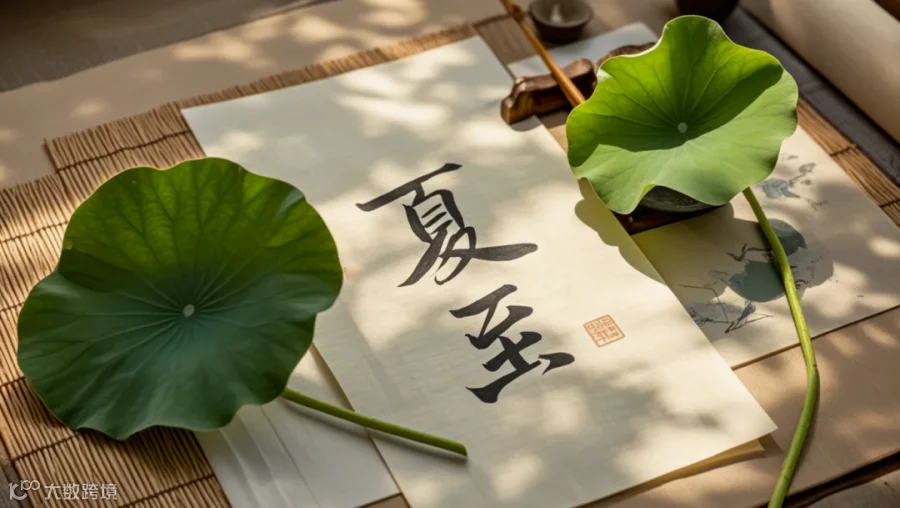 夏
至
10100 大数跨境